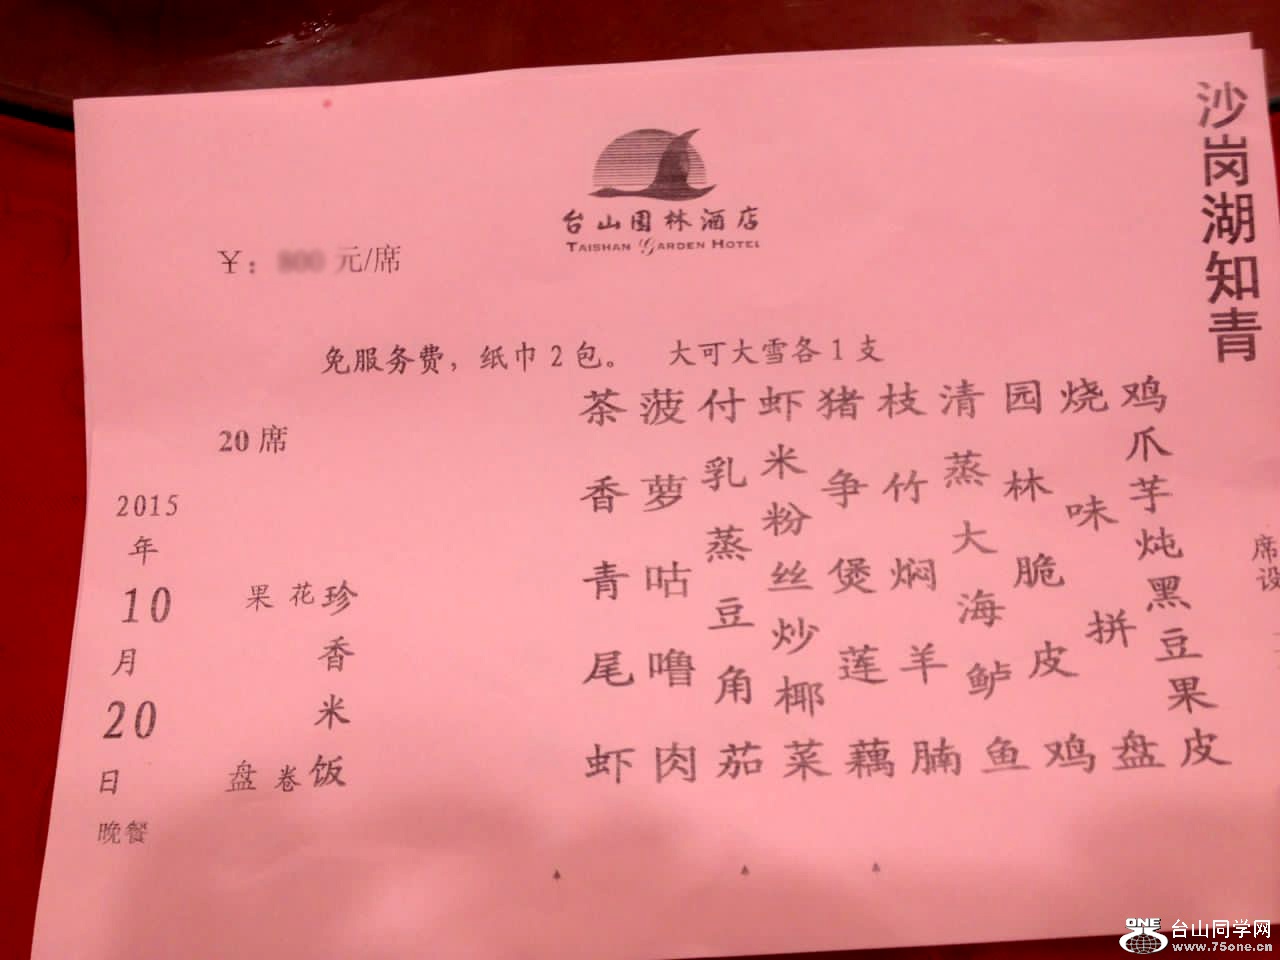 沙岗湖知青
台山园林酒店
TAISHAN GARDEN HOTEL
￥：800元/席
免服务费，纸巾2包。 大可大雪各1支
20席
席设
鸡爪芋炖黑豆果皮
烧味拼盘
园林脆皮鸡
清蒸大海鲈鱼
枝竹焖羊腩
猪争煲莲藕
虾米粉丝炒椰菜
付乳蒸豆角茄
菠萝咕噜肉
茶香青尾虾
珍香米饭
花卷
果盘
2015年10月20日
晚餐
ONE
台山同学网
www.75one.cn